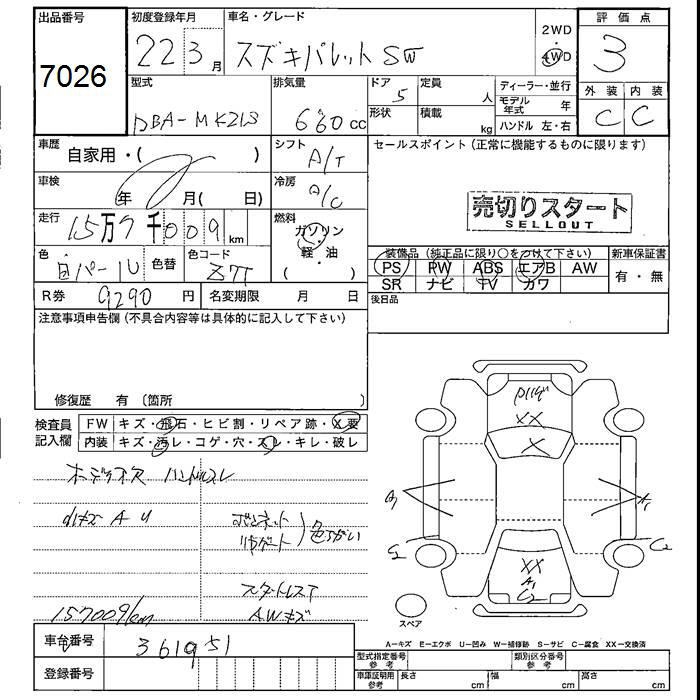 出品番号 初度登録年月 車名・グレード 2WD・4WD 評価点
7026 22 3月 スズキパレットSW 3
型式 排気量 ドア 定員 ディーラー・並行 外装 内装
DBA-MK21S 660cc 5 人 モデル年式 年 C C
形状 積載 kg ハンドル 左・右
車歴 自家用・( ) シフト A/T セールスポイント(正常に機能するものに限ります)
車検 年 月( 日) 冷房 A/C
売切りスタート
SELLOUT
走行 15万7千009km 燃料 ガソリン・軽・油 ( )
色 白パール 色替 色コード Z7T
装備品(純正品に限り○をつけて下さい) 新車保証書
PS PW ABS エアB AW 有・無
SR ナビ TV カワ
R券 9290円 名変期限 月 日 後日品
注意事項申告欄(不具合内容等は具体的に記入して下さい)
修復歴 有(箇所
検査員記入欄 FW キズ・飛石・ヒビ割・リペア跡・X要
内装 キズ・汚レ・コゲ・穴・スレ・キレ・破レ
ハンドルスレ
小キズ A U
ボンネット
リヤゲート
色ちがい
スタットレスT
AWキズ
157009km
XX
X
XX
A1
C2
C2
スペア
A-キズ E-エクボ U-凹み W-補修跡 S-サビ C-腐食 XX-交換済
車台番号 361951
登録番号
型式指定番号 参考 類別区分番号 参考
車庫証明用 参考 長さ cm 幅 cm 高さ cm